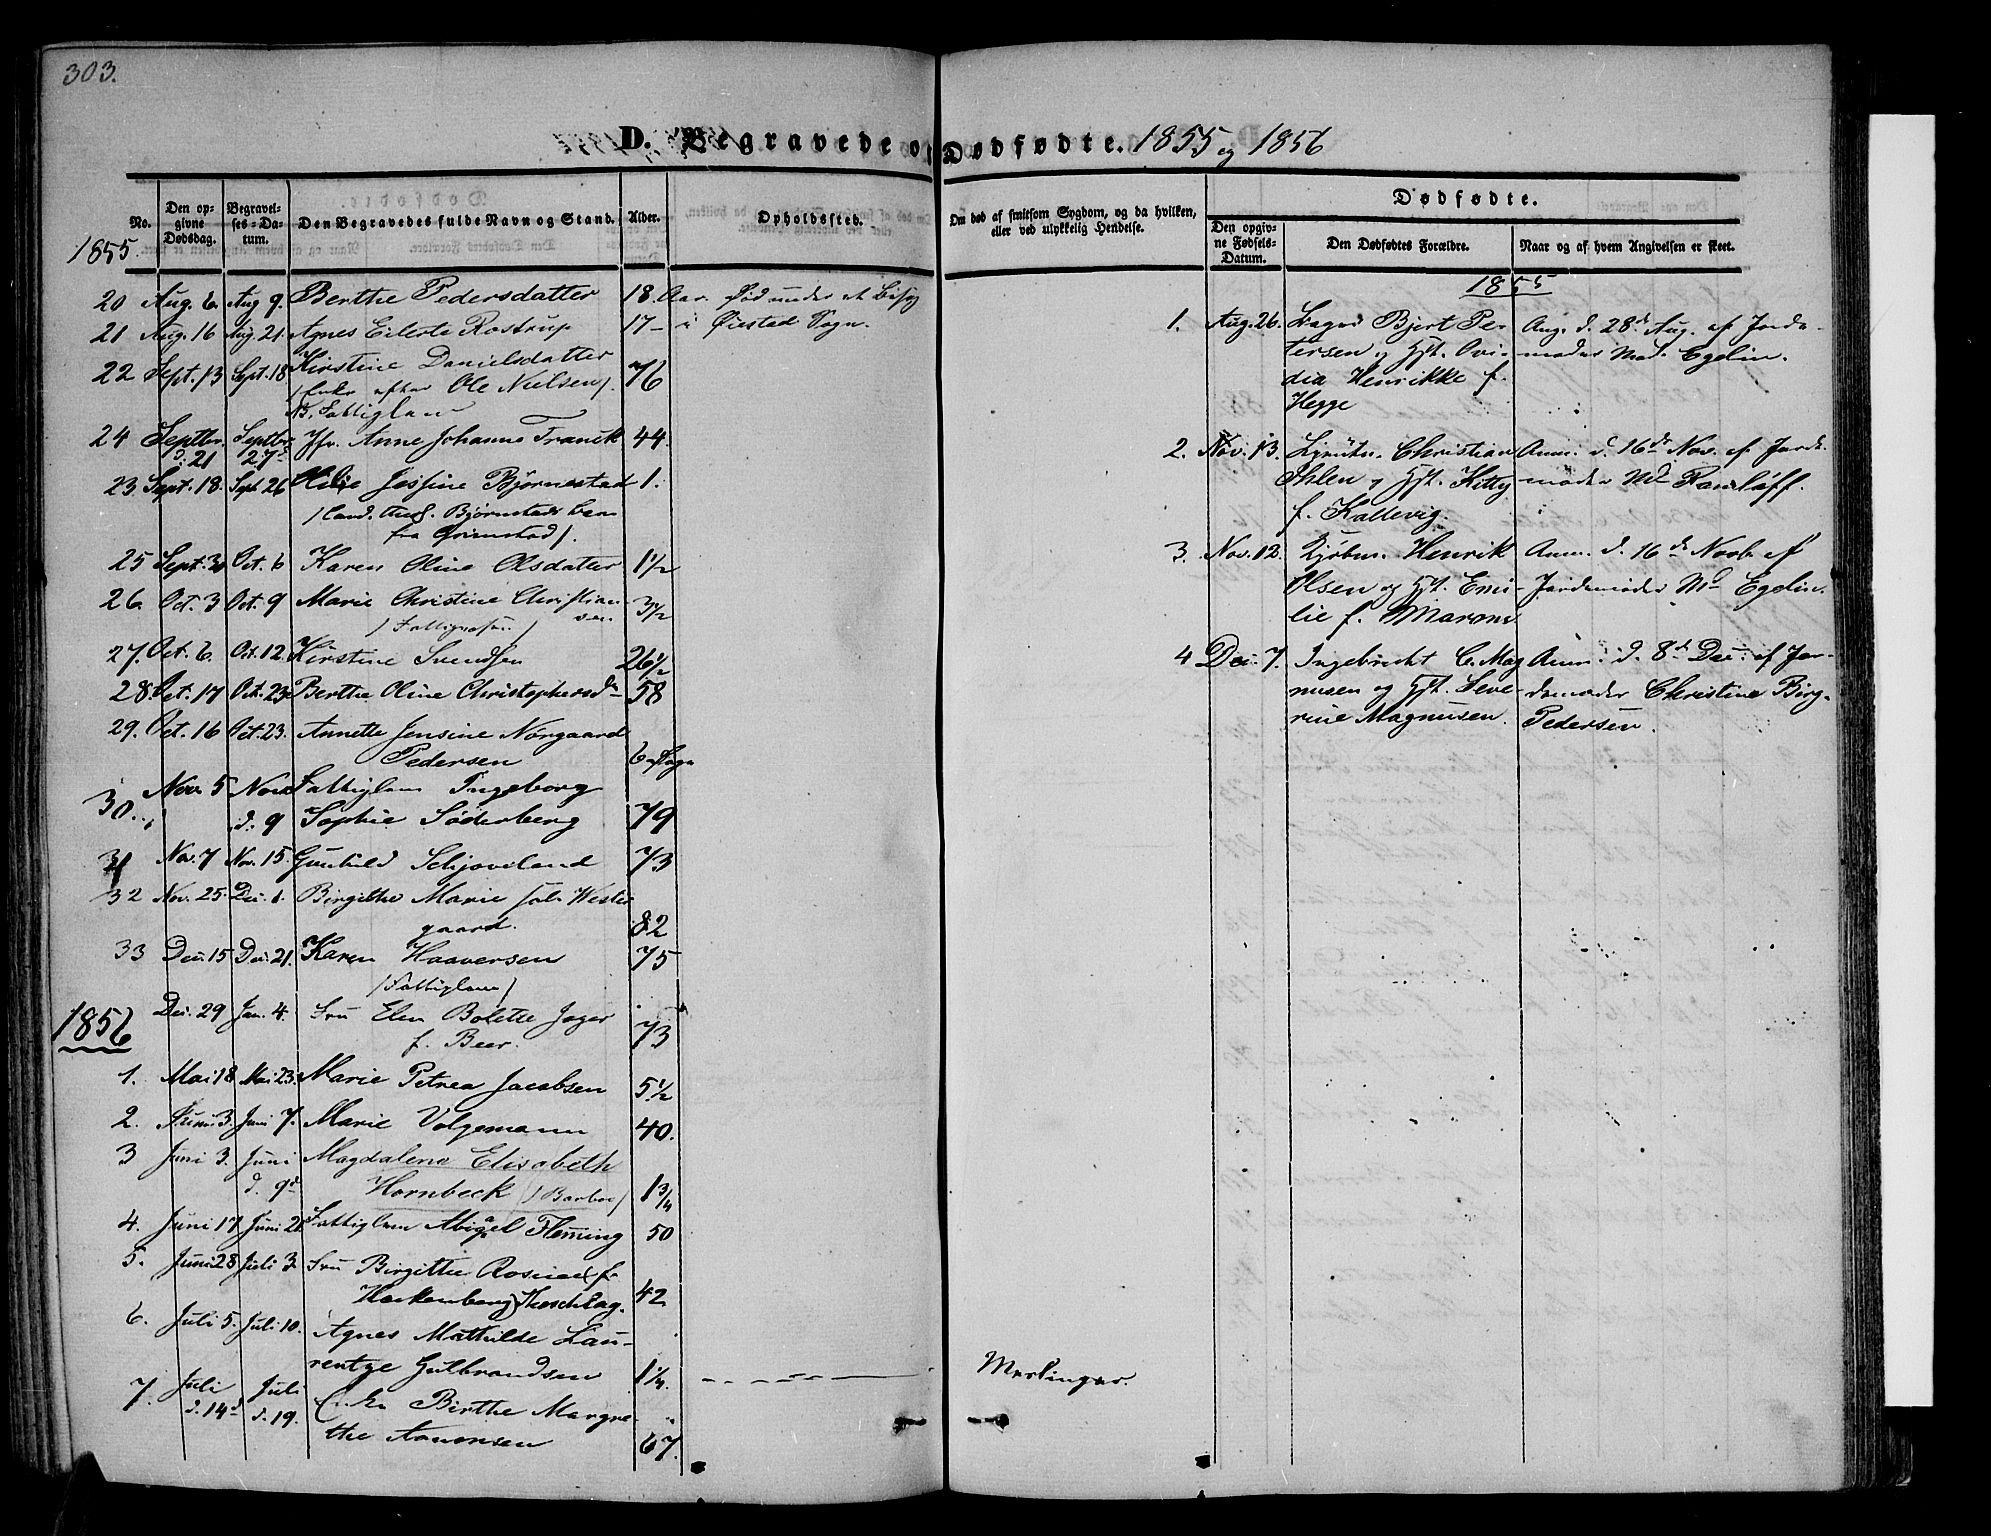 303.
D. Begravede og Dødfødte. 1855 og 1856
No.
Den opgivne Dødsdag.
Begravelses-Datum.
Den Begravedes fulde Navn og Stand.
Alder.
Opholdssted.
Om død af smitsom Sygdom, og da hvilken, eller ved ulykkelig Hendelse.
Dødfødte.
Den opgivne Fødsels-Datum.
Den Dødfødtes Forældre.
Naar og af hvem Angivelsen er skeet.
1855.
20 Aug. 6. Aug 9. Berthe Pedersdatter 18. Aar. Død under et Besøg
21 Aug. 16 Aug. 21. Agnes Eilerte Rostrup 17 - i Øiestad Sogn.
22 Sept. 13 Sept. 18 Kirstine Danielsdatter 76
(Enke efter Ole Nielsen).
NB. Fattiglem
24 Septbr. d. 21 Septbr. 27d Jfr. Anne Johanne Franck 44.
23 Sept. 18. Sept. 26 Jessine Bjørnestad 1.
(Cand. theol. Bjørnestads barn
fra Grimstad).
25 Sept. 30 Oct. 6 Karen Oline Olsdatter 1 1/2
26. Oct. 3 Oct. 9 Marie Christine Christiansen 3 1/2
27. Oct. 6. Oct. 12. Kirstine Svendsen 26 1/2
28. Oct. 17 Oct. 23 Berthe Oline Christophersdr 58
29. Oct. 16 Oct. 23. Annette Jensine Norgaard
Pedersen 6 Dage
30. Nov. 5 Nov. d. 9 Fattiglem Ingeborg
Sophie Söderberg 79
31 Nov. 7 Nov. 15. Gunhild Schjoveland 73
32 Nov. 25. Dec. 1. Birgithe Marie Wester
gaard. 82
33 Dec. 15 Dec. 21. Karen Haaversen 75
(Fattiglem)
1856 Dec. 29 Jan. 4. Fru Elen Bolette Jager
f. Beer. 73
1. Mai 18 Mai 23. Marie Petrea Jacobsen 5 1/2
2. Juni 3. Juni 7. Marie Volgemann 40.
3 Juni 3. Juni d. 9d Magdalene Elisabeth
Hornbeck (Barboe) 1 3/4
4. Juni 17 Juni 21 Fattiglem Abigael Fleming 50
5. Juni 28 Juli 3 Fru Birgitte Rosine (f.
Hackenberg) 42
6. Juli 5. Juli 10. Agnes Mathilde Lau-
rentze Gulbrandsen 1 1/4. Meslinger.
7. Juli d. 14d Juli d. 19. Enke Birthe Margre-
the Aanonsen 67.
1855
1. Aug. 26. Bjert Pe- Ang. d. 28d Aug. af Jorde-
tersen og Hst. Ovi- moder Mad. Egelin.
dia Henrikke f.
Hegge
2. Nov. 13. Christian Anm. d. 16de Nov. af Jorde-
Ihlen og Hst. Kitty moder Md
f. Kallevig.
3. Nov. 12. Kjøbm. Henrik Anm. d. 16de Novb. af
Olsen og Hst. Emi- Jordemoder Md Egelin.
lie f. Marcus
4 Dec. 7. Ingebrecht C. Mag Anm. d. 8d Dec. af Jor-
nusen og Hst. Seve- demoder Christine Birg.
rine Magnusen. Pedersen.